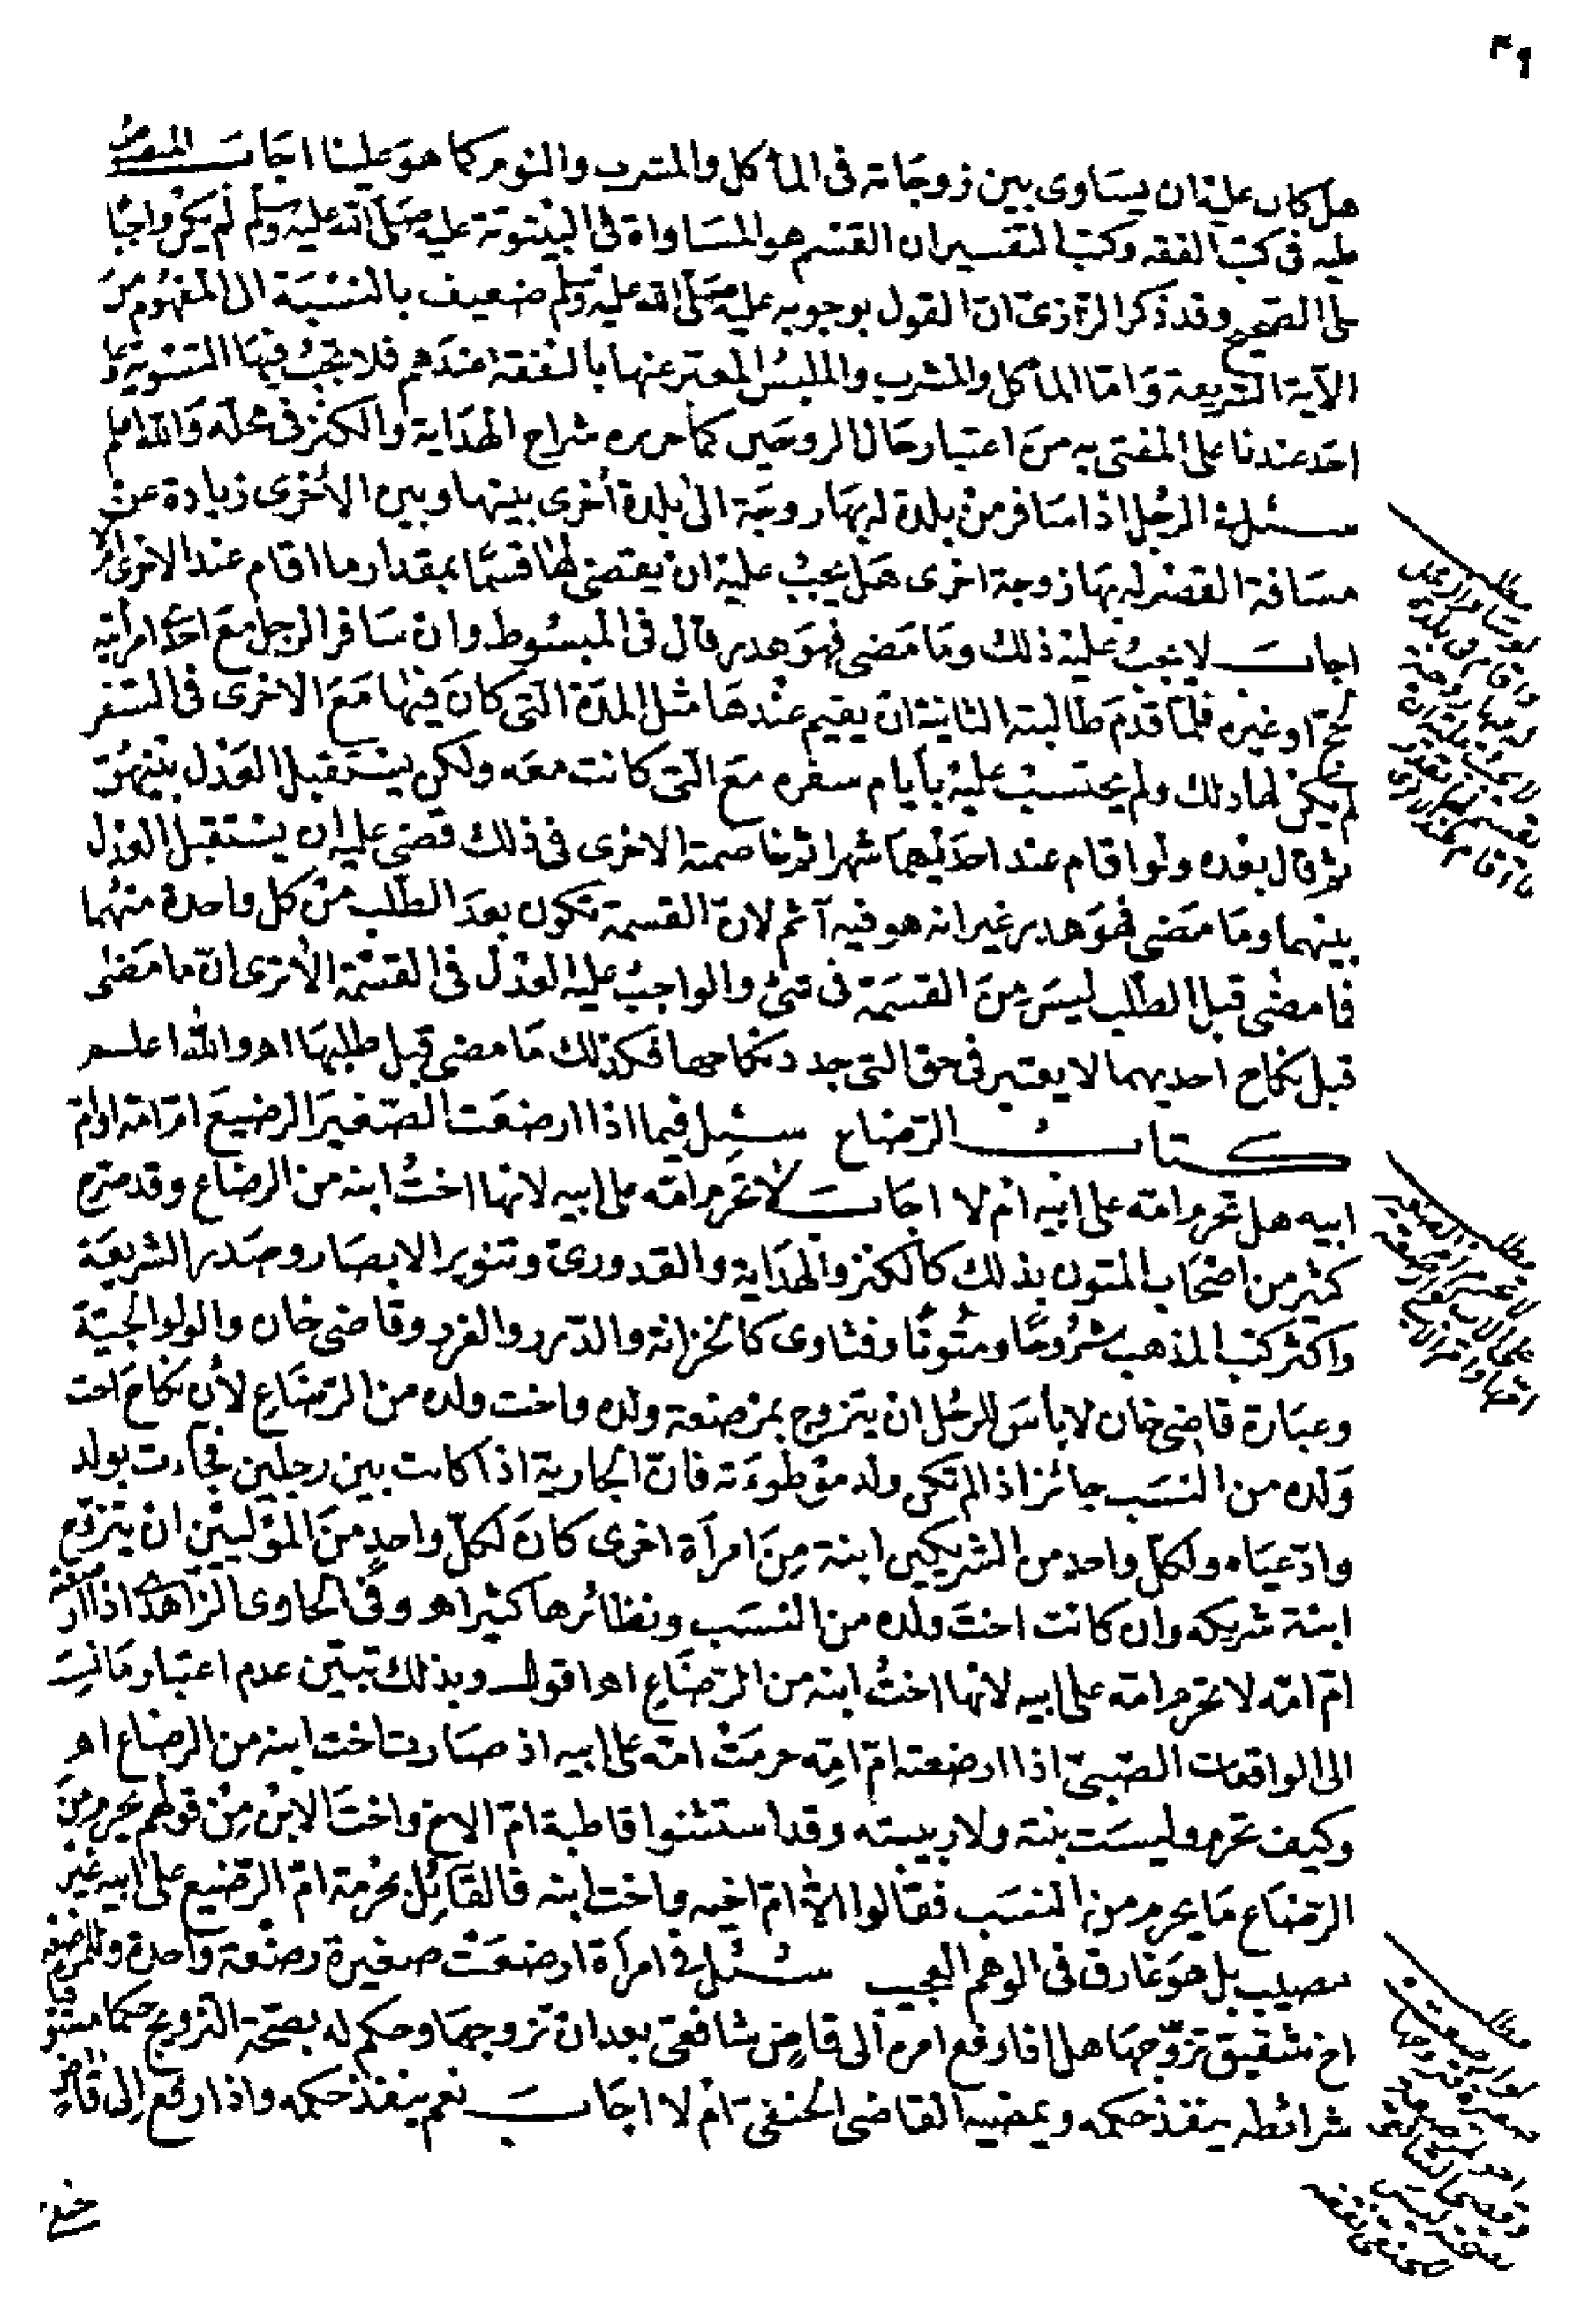 ٤٩
هل كان عليه ان يساوى بين زوجاته فى المأكل والمشرب والنوم كما هو علينا اجاب المنصوص
عليه فى كتب الفقه وكتب التفسير ان القسم هو المساواة فى البيتوتة عليه صلى الله عليه وسلم لم يكن واجبا
على الصحيح وقد ذكر الرازى ان القول بوجوبه عليه صلى الله عليه وسلم ضعيف بالنسبة الى المفهوم من
الآية الشريفة واما المأكل والمشرب والملبس المعبر عنها بالنفقة عندهم فلا يجب فيها التسوية على
احد عندنا على المفتى به من اعتبار حال الزوجين كما حرره شراح الهداية والكنز فى محله والله اعلم
سئل فى الرجل اذا سافر من بلدة له بها زوجة الى بلدة أخرى بينها وبين الأخرى زيادة عن
مسافة القصر له بها زوجة اخرى هل يجب عليه ان يقضى لها قسما بمقدار ما اقام عند الاخرى ام لا
اجاب لا يجب عليه ذلك وما مضى فهو هدر قال فى المبسوط وان سافر الرجل مع احدى امرأتيه
لحج او غيره فلما قدم طالبته الثانية ان يقيم عندها مثل المدة التى كان فيها مع الاخرى فى السفر
لم يكن لها ذلك ولم يحتسب عليه بأيام سفره مع التى كانت معه ولكن يستقبل العدل بينهن
ثم قال بعده ولو اقام عند احديهما شهرا ثم خاصمته الاخرى فى ذلك قضى عليه ان يستقبل العدل
بينهما وما مضى فهو هدر غير انه هو فيه آثم لان القسمة تكون بعد الطلب من كل واحدة منهما
فما مضى قبل الطلب ليس من القسمة فى شئ والواجب عليه العدل فى القسمة الا ترى ان ما مضى
قبل نكاح احديهما لا يعتبر فى حق التى جدد نكاحها فكذلك ما مضى قبل طلبها اهـ والله اعلم
كتاب الرضاع سئل فيما اذا ارضعت الصغير الرضيع ام امه او ام
ابيه هل تحرم امه على ابيه ام لا اجاب لا تحرم امه على ابيه لانها اخت ابنه من الرضاع وقد صرح
كثير من اصحاب المتون بذلك كالكنز والهداية والقدورى وتنوير الابصار وصدر الشريعة
واكثر كتب المذهب شروحا ومتونا وفتاوى كالخزانة والدرر والغرر وقاضى خان والولوالجية
وعبارة قاضى خان لا بأس للرجل ان يتزوج بمرضعة ولده واخت ولده من الرضاع لأن نكاح اخت
ولده من النسب جائز اذا لم تكن ولد موطوءته فان الجارية اذا كانت بين رجلين فجاءت بولد
وادعياه ولكل واحد من الشريكين ابنة من امرأة اخرى كان لكل واحد من الموليين ان يتزوج
ابنة شريكه وان كانت اخت ولده من النسب ونظائرها كثير اهـ وفى الحاوى الزاهدى اذا ارضعته
ام امه لا تحرم امه على ابيه لانها اخت ابنه من الرضاع اهـ اقول وبذلك تبين عدم اعتبار ما نسب
الى الواقعات الصبى اذا ارضعته ام امه حرمت امه على ابيه اذ صارت اخت ابنه من الرضاع اهـ
وكيف تحرم وليست بنته ولا ربيبته وقد استثنوا قاطبة ام الاخ واخت الابن من قولهم يحرم من
الرضاع ما يحرم من النسب فقالوا الا ام اخيه واخت ابنه فالقائل بحرمة ام الرضيع على ابيه غير
مصيب بل هو غارق فى الوهم العجيب سئل فى امرأة ارضعت صغيرة رضعة واحدة وللمرضعة
اخ شقيق تزوجها هل اذا رفع امره الى قاض شافعى بعد ان تزوجها وحكم له بصحة التزويج حكما مستوفيا
شرائطه ينفذ حكمه ويمضيه القاضى الحنفى ام لا اجاب نعم ينفذ حكمه واذا رفع الى قاض
مطلب
مطلب
مطلب